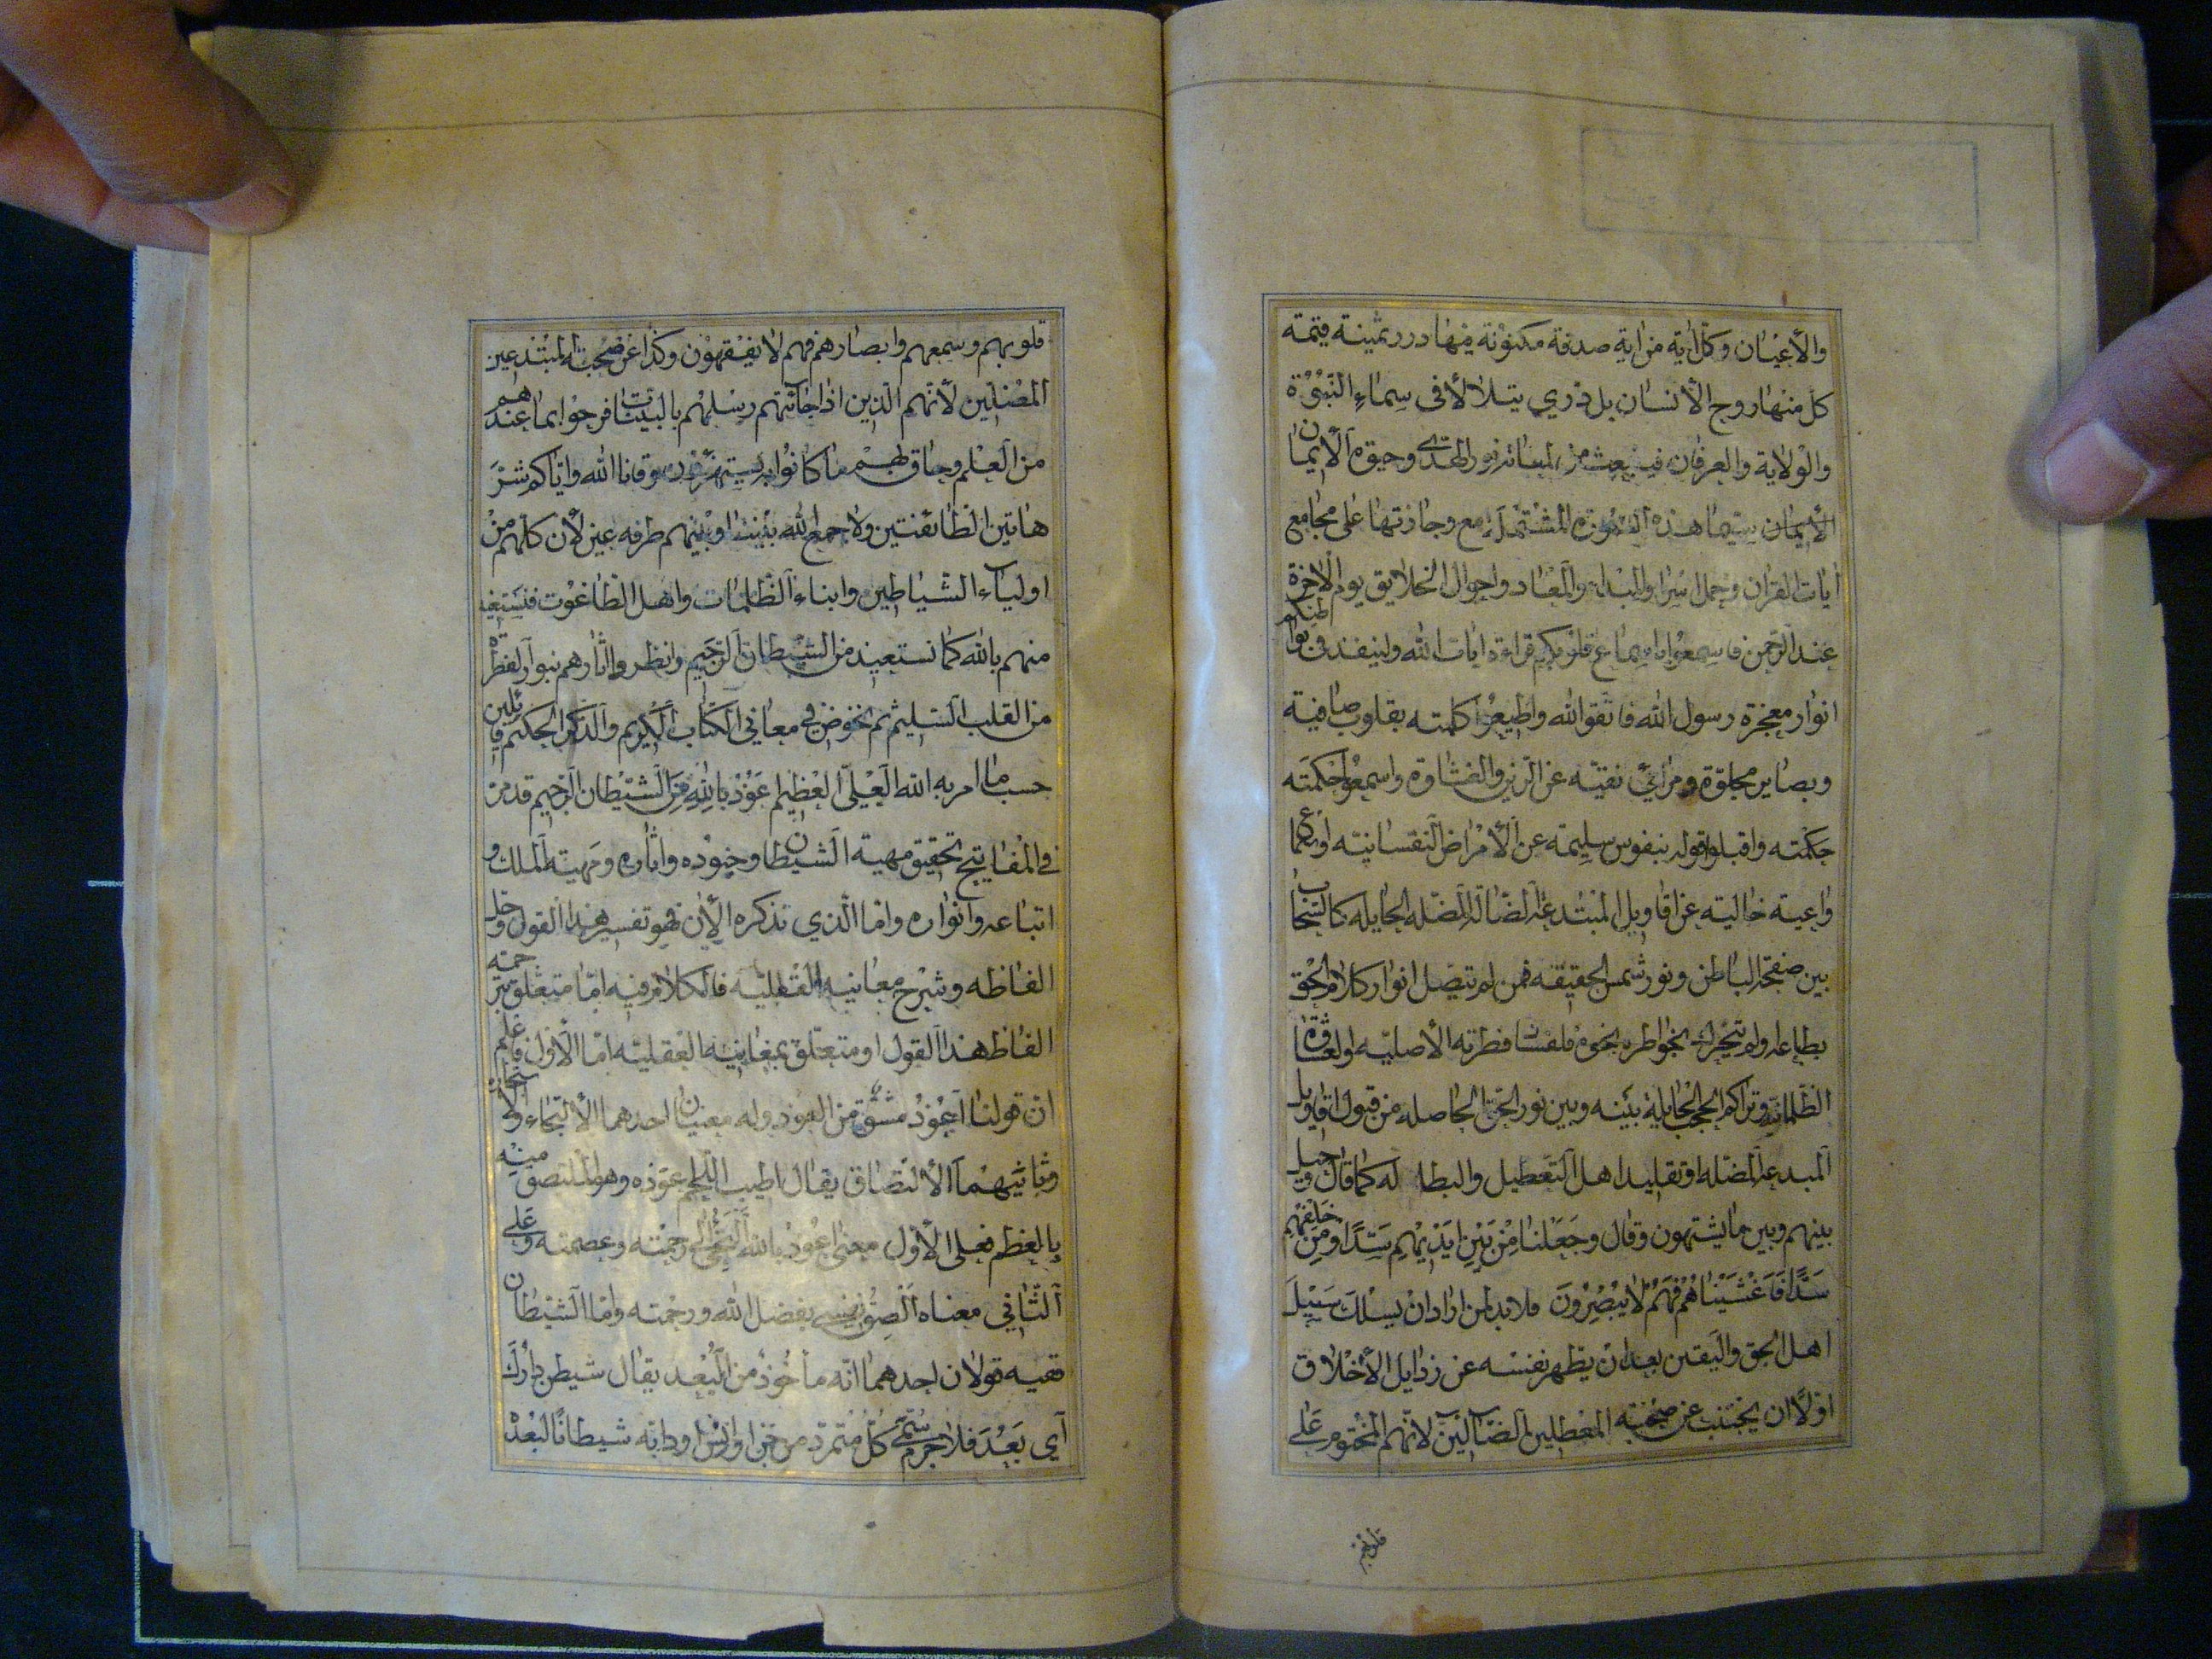 والأعيان وكل آية من آية صدفة مكنونة فيها درر ثمينة قيمة
كل منها روح الأنسان بل دري يتلألأ في سماء النبوة
والولاية والعرفان نور الهدى وحيوة الأيمان
الأيمان سيما هذه السورة المشتملة مع وجازتها على مجامع
آيات القرآن وجمل اسرار المبداء والمعاد واحوال الخلايق يوم الآخرة
عند الرحمن فاسمعوا باسماع قلوبكم قراءة آيات الله ولينفذ في بواطنكم
انوار معجزة رسول الله فاتقوا الله واطيعوا كلمته بقلوب صافية
وبصاير مجلوة ومرائي نقية عن الرين والغشاوة واسمعوا حكمته
حكمته واقبلوا قوله بنفوس سليمة عن الأمراض النفسانية
واعية خالية عن اقاويل المبتدعة الضالة المضلة الحايلة كالسحاب
بين صفحة الباطن ونور شمس الحقيقة فمن لم تتصل انوار كلام الحق
بطباعه ولم تتحرك بخواطره نحوه فلفساد فطرته الأصلية او لعلاقة
الظلمانية وتراكم الحجب الحايلة بينه وبين نور الحق الحاصلة من قبول اقاويل
المبدعة المضلة او تقليد اهل التعطيل والبطالة كما قال وحيل
بينهم وبين ما يشتهون وقال وجعلنا من بين ايديهم سدا ومن خلفهم
سدا فاغشيناهم فهم لا يبصرون فلا بد لمن اراد ان يسلك سبيل
اهل الحق واليقين بعد ان يطهر نفسه عن رذايل الأخلاق
اولا ان يجتنب عن صحبة المعطلين الضالين لانهم المختوم على
قلوبهم وسمعهم وابصارهم فهم لا يفقهون وكذا عن صحبة المبتدعين
المضلين لأنهم الذين اذا جائتهم رسلهم بالبينات فرحوا بما عندهم
من العلم وحاق بهم ما كانوا به يستهزؤن وقانا الله واياكم شر
هاتين الطائفتين ولا جمع الله بيننا وبينهم طرفة عين لأن كلهم من
اولياء الشياطين وابناء الظلمات واهل الطاغوت فنستعيذ
منهم بالله كما نستعيذ من الشيطان الرجيم
من القلب السليم ثم نخوض في معاني الكتاب الكريم والذكر الحكيم قائلين
حسب ما امر به الله العلي العظيم عوذ بالله من الشيطان الرجيم قد مر
في المفاتيح تحقيق مهية الشيطان وجنوده واثاره ومهية الملك و
اتباعه وانواره واما الذي نذكره الآن فهو تفسير هذا القول وحل
الفاظه وشرح معانيه العقلية فالكلام فيه اما متعلق بترجمة
الفاظ هذا القول او متعلق بمعانيه العقلية اما الأول فاعلم
ان قولنا اعوذ مشتق من العوذ وله معنيان احدهما الألتجاء والاستجارة
وثانيهما الألتصاق يقال اطيب اللحم عوذه وهو الملتصق منه
بالعظم فعلى الأول معنى اعوذ بالله التجئ الى رحمته وعصمته وعلى
الثاني معناه الصق نفسي بفضل الله ورحمته واما الشيطان
ففيه قولان احدهما انه مأخوذ من البعد يقال شيطن دارك
اي بعد فلا جرم سمي كل متمرد من جن او انس او دابة شيطانا لبعده